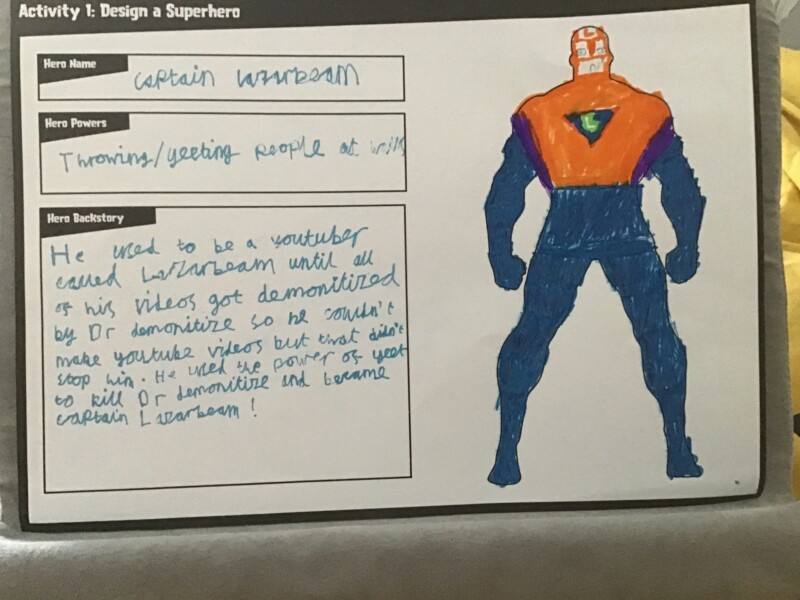 Activity 1: Design a Superhero
Hero Name
Captain Lazarbeam
Hero Powers
Throwing/yeeting people at will
Hero Backstory
He used to be a youtuber
called Lazarbeam until all
of his videos got demonitized
by Dr demonitize so he couldn't
make youtube videos but that didn't
stop him. He used the power of yeet
to kill Dr demonitize and became
captain Lazarbeam!
L
L